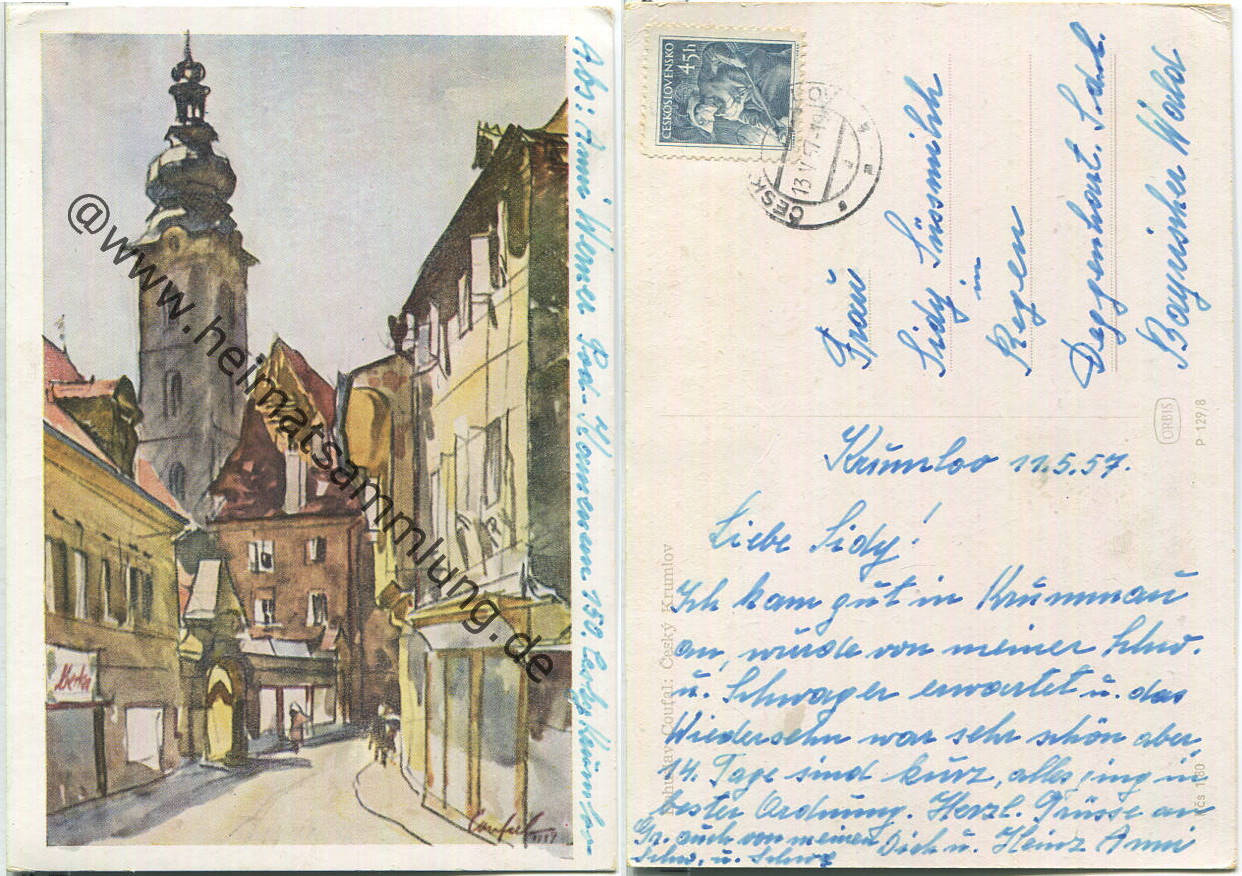 Abs: Anni Werner Pod-Kamenem 150. Český Krumlov
@www.heimatsammlung.de
Coufal
ČESKOSLOVENSKO
45h
ČESK
13.V.57-19
Frau
Sidy Süssmilch
in
Regen
Deggenhart. Sdl.
Bayrischer Wald
ORBIS
P 129/8
Krumlov 11.5.57.
Liebe Sidy!
Ich kam gut in Krummau
an, wurde von meiner Schw.
u. Schwager erwartet u. das
Wiedersehn war sehr schön aber,
14. Tage sind kurz, alles ging in
bester Ordnung. Herzl. Grüsse an
Dich u. Heinz Anni
Gr. auch von meinen
Schw. u. Schwg
Coufal: Český Krumlov